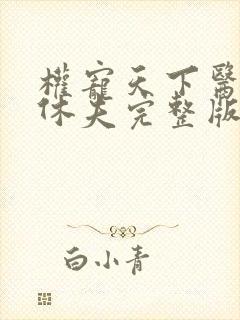 權寵天下醫
休夫完整版
白小青